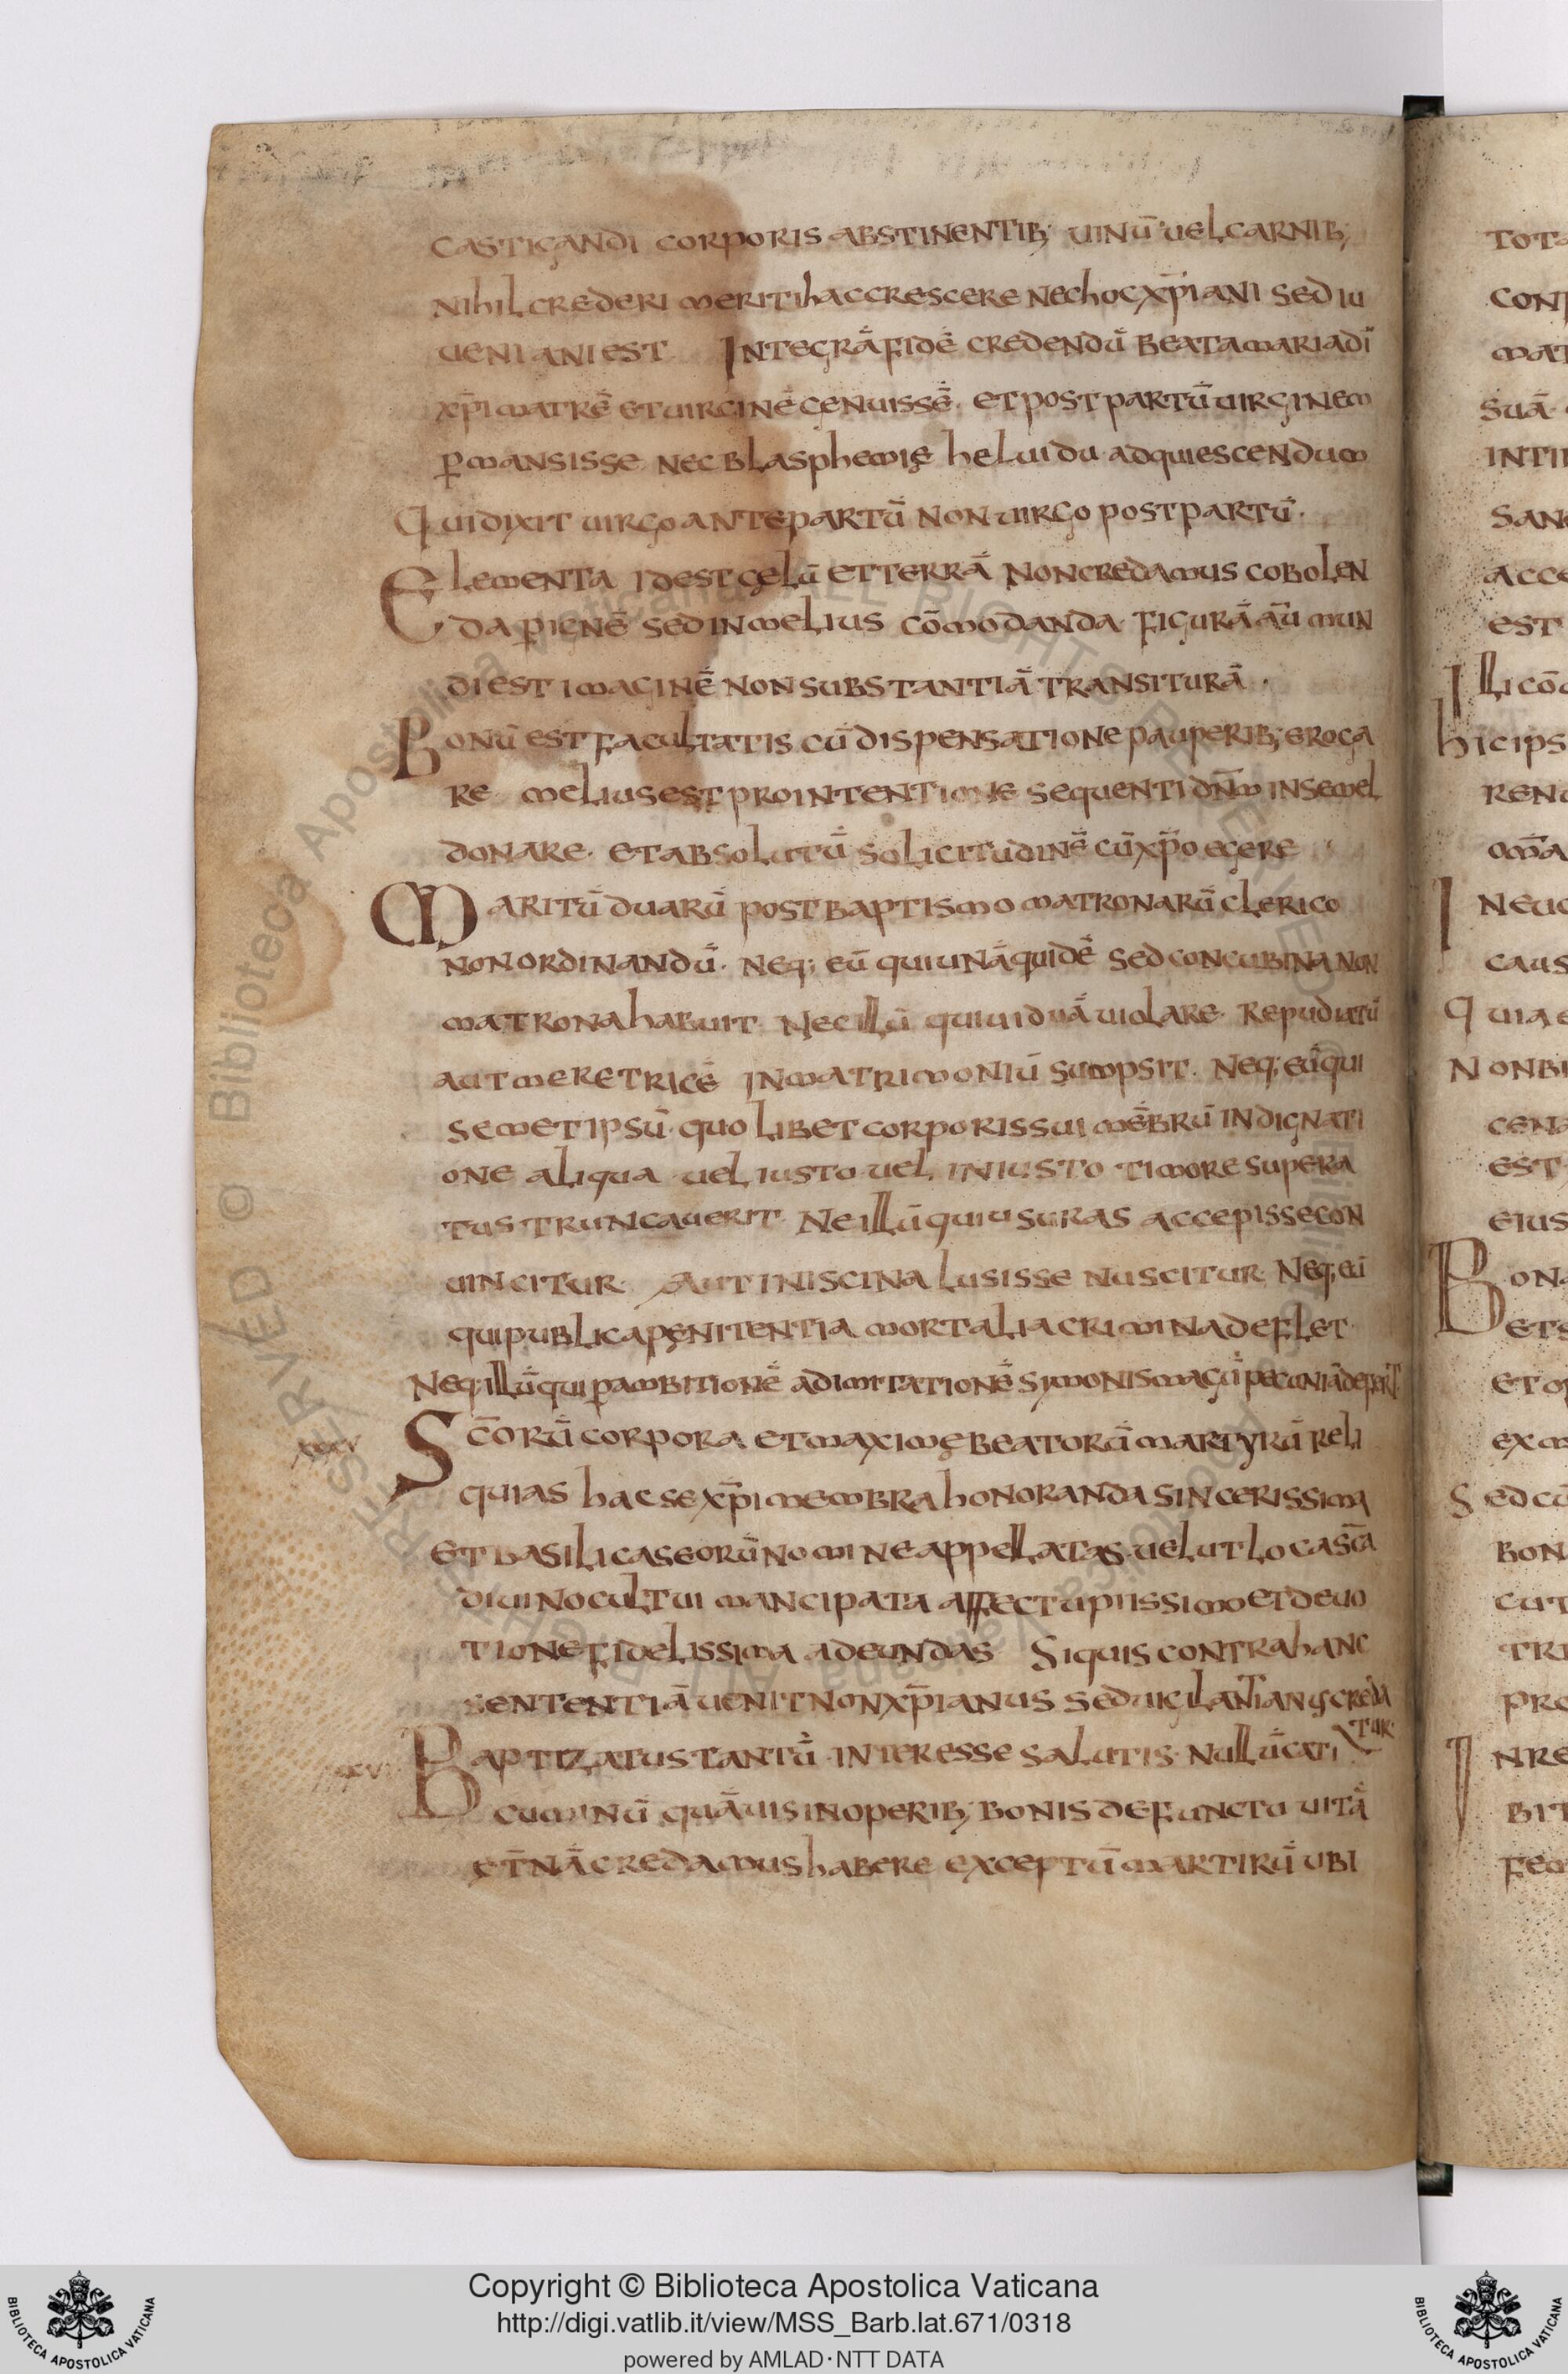 CASTIGANDI CORPORIS ABSTINENTIB; UINŪ UEL CARNIB;
NIHIL CREDERI MERITI HACCRESCERE NEC HOC XP̄IANI SED IU
UENIANI EST INTEGRĀ FIDĒ CREDENDŪ BEATA MARIA DĪ
XP̄I MATRĒ ET UIRGINĒ GENUISSĒ. ET POST PARTŪ UIRGINEM
P̱MANSISSE NEC BLASPHEMIĘ HELUIDII ADQUIESCENDUM
QUI DIXIT UIRGO ANTE PARTŪ NON UIRGO POST PARTŪ.
ELEMENTA ID EST CĘLŪ ET TERRĀ NON CREDAMUS COBOLEN
DA P̱ IGNĒ SED IN MELIUS CŌMODANDA. FIGURĀ AŪ MUN
DI EST IMAGINĒ NON SUBSTANTIĀ TRANSITURĀ.
BONŪ EST FACULTATIS CŪ DISPENSATIONE PAUPERIB; EROGA
RE MELIUS EST PRO INTENTIONE SEQUENTI DN̄M INSEMEL
DONARE. ET ABSOLUTŪ SOLICITUDINĒ CŪ XP̄O EGERE
MARITŪ DUARŪ POST BAPTISMO MATRONARŪ CLERICO
NON ORDINANDŪ. NEQ; EŪ QUI UNĀ QUIDĒ SED CONCUBINA NON
MATRONA HABUIT. NEC ILLŪ QUI UIDUĀ UIOLARE. REPUDIATŪ
AUT MERETRICĒ IN MATRIMONIŪ SUMPSIT. NEQ; EŪ QUI
SEMETIPSŪ QUOLIBET CORPORIS SUI MĒBRŪ INDIGNATI
ONE ALIQUA UEL IUSTO UEL INIUSTO TIMORE SUPERA
TUS TRUNCAUERIT. NE ILLŪ QUI USURAS ACCEPISSE CON
UINCITUR. AUT IN ISCINA LUSISSE NUSCITUR. NEQ; EŪ
QUI PUBLICA PĘNITENTIA MORTALIA CRIMINA DEFLET
NEQ; ILLŪ QUI P̱ AMBITIONĒ AD IMITATIONĒ SYMONIS MAGŪ PECUNIĀ DEPERT
SC̄ORŪ CORPORA ET MAXIMĘ BEATORŪ MARTYRŪ RELI
QUIAS HAC SE XP̄I MEMBRA HONORANDA SINCERISSIMA
ET BASILICAS EORŪ NOMINE APPELLATAS. UELUT LOCA SC̄A
DIUINO CULTUI MANCIPATA AFFECTU PIISSIMO ET DEUO
TIONE FIDELISSIMA ADEUNDAS SI QUIS CONTRA HANC
SENTENTIĀ UENIT NON XP̄IANUS SED UIGILANTIANUS CREDA
TUR.
BAPTIZATUS TANTŪ INTERESSE SALUTIS. NULLŪ CATI
CUMINŪ QUĀUIS IN OPERIB; BONIS DEFUNCTU UITĀ
ĘT̄NĀ CREDAMUS HABERE EXCEPTŪ MARTIRŪ UBI
Copyright © Biblioteca Apostolica Vaticana
http://digi.vatlib.it/view/MSS_Barb.lat.671/0318
powered by AMLAD·NTT DATA